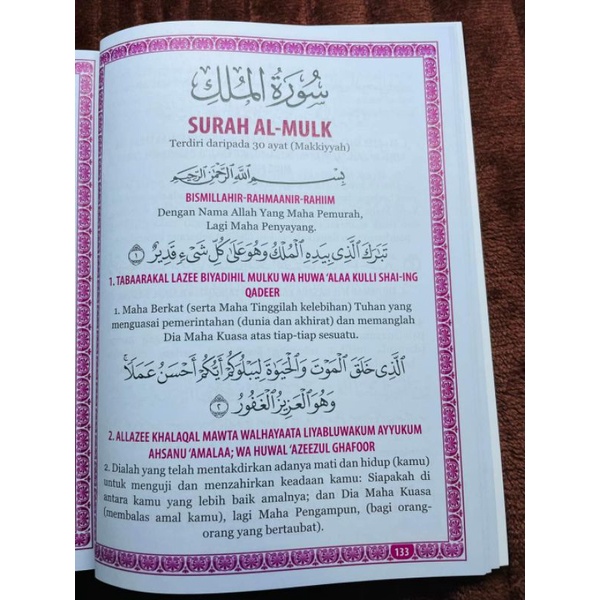 سُورَةُ الْمُلْكِ
SURAH AL-MULK
Terdiri daripada 30 ayat (Makkiyyah)
بِسْمِ اللَّهِ الرَّحْمَٰنِ الرَّحِيمِ
BISMILLAHIR-RAHMAANIR-RAHIIM
Dengan Nama Allah Yang Maha Pemurah,
Lagi Maha Penyayang.
تَبَارَكَ الَّذِي بِيَدِهِ الْمُلْكُ وَهُوَ عَلَىٰ كُلِّ شَيْءٍ قَدِيرٌ ﴿١﴾
1. TABAARAKAL LAZEE BIYADIHIL MULKU WA HUWA ‘ALAA KULLI SHAI-ING
QADEER
1. Maha Berkat (serta Maha Tinggilah kelebihan) Tuhan yang
menguasai pemerintahan (dunia dan akhirat) dan memanglah
Dia Maha Kuasa atas tiap-tiap sesuatu.
الَّذِي خَلَقَ الْمَوْتَ وَالْحَيَوٰةَ لِيَبْلُوَكُمْ أَيُّكُمْ أَحْسَنُ عَمَلًا ۚ
وَهُوَ الْعَزِيزُ الْغَفُورُ ﴿٢﴾
2. ALLAZEE KHALAQAL MAWTA WALHAYAATA LIYABLUWAKUM AYYUKUM
AHSANU ‘AMALAA; WA HUWAL ‘AZEEZUL GHAFOOR
2. Dialah yang telah mentakdirkan adanya mati dan hidup (kamu)
untuk menguji dan menzahirkan keadaan kamu: Siapakah di
antara kamu yang lebih baik amalnya; dan Dia Maha Kuasa
(membalas amal kamu), lagi Maha Pengampun, (bagi orang-
orang yang bertaubat).
133